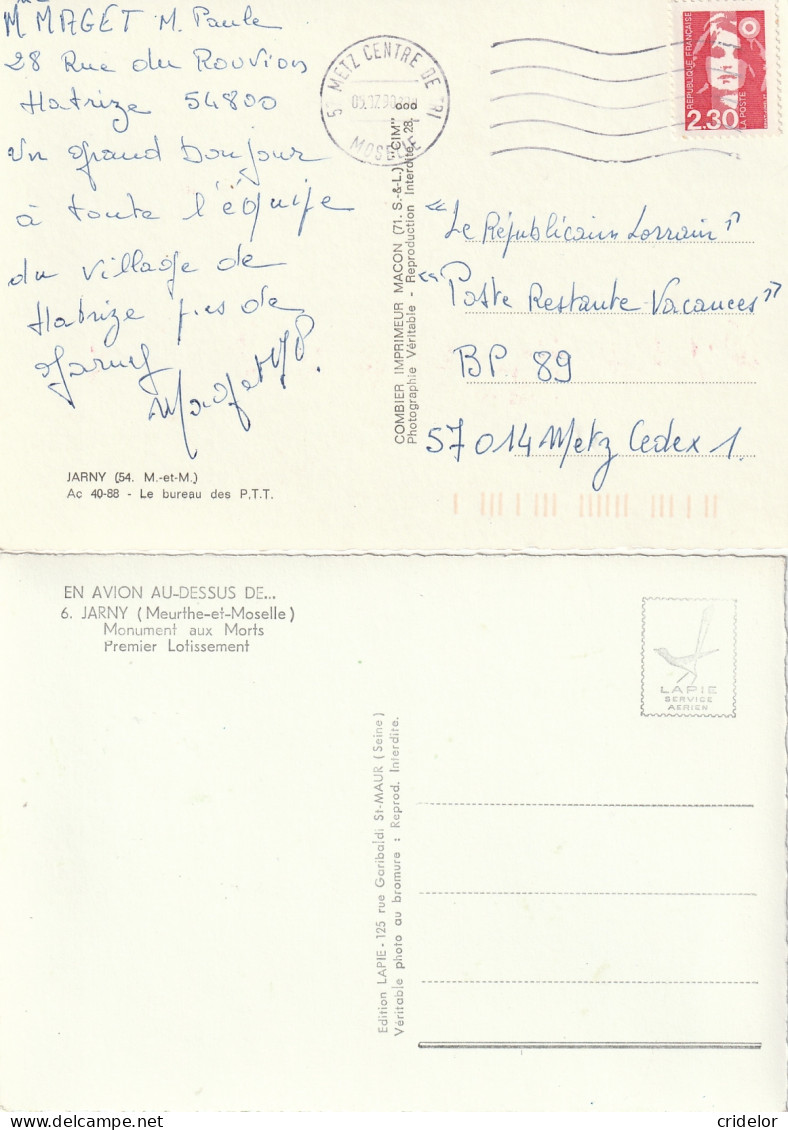 M MAGET M. Paule
28 Rue du Rouvion
Hatrize 54800
Un grand bonjour
à toute l'équipe
du village de
Hatrize près de
Jarny
JARNY (54. M.-et-M.)
Ac 40-88 - Le bureau des P.T.T.
METZ CENTRE DE TRI
MOSELLE
COMBIER IMPRIMEUR MACON (71. S.-&-L.) "CIM"
Photographie Véritable - Reproduction Interdite
REPUBLIQUE FRANÇAISE
LA POSTE
2.30
« Le Républicain Lorrain »
« Poste Restante Vacances »
BP 89
57014 Metz Cedex 1.
EN AVION AU-DESSUS DE...
6. JARNY (Meurthe-et-Moselle)
Monument aux Morts
Premier Lotissement
LAPIE
SERVICE
AERIEN
Edition LAPIE - 125 rue Garibaldi St-MAUR (Seine)
Véritable photo au bromure : Reprod. Interdite.
delcampe.net
cridelor